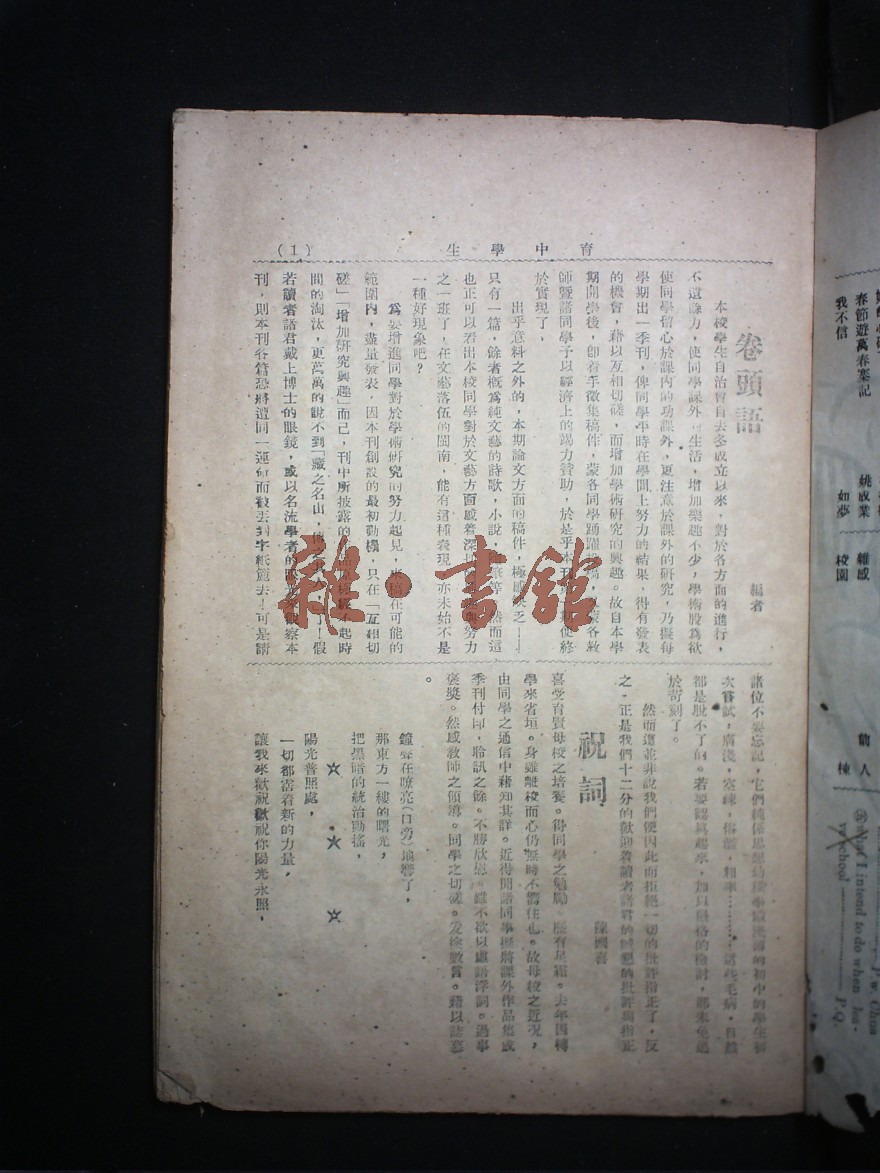 育中學生
(1)
卷頭語
編者
本校學生自治會自去冬成立以來，對於各方面的進行，
不遺餘力，使同學課外有生活，增加樂趣不少，學術股為欲
使同學留心於課內的功課外，更注意於課外的研究，乃擬每
學期出一季刊，俾同學平時在學問上努力的結果，得有發表
的機會，藉以互相切磋，而增加學術研究的興趣。故自本學
期開學後，卽着手徵集稿件，蒙各同學踴躍 稿， 蒙各教
師暨諸同學予以經濟上的踢力贊助，於是乎本刊 使終
於實現了，
出乎意料之外的，本期論文方面的稿件，極 缺乏——
只有一篇，餘者概為純文藝的詩歌，小說， 等 然而這
也正可以看出本校同學對於文藝方面感着深切 努力
之一班了，在文藝落伍的閩南，能有這種表現 亦未始不是
一種好現象吧？
為要增進同學對於學術研究的努力起見，來稿在可能的
範圍內，盡量發表，因本刊創設的最初動機，只在「互相切
磋」「增加研究興趣」而已，刊中所披露的 不起時
間的淘汰，更萬萬的說不到「藏之名山，傳 了！假
若讀者諸君戴上博士的眼鏡，或以名流學者的 來觀察本
刊，則本刊各篇恐將遭同一運命而被丟到字紙簏去！可是請
諸位不要忘記，它們純係思想幼稚學識淺薄的初中的學生初
次嘗試，膚淺，空疎，俗 ，粗率………這些毛病，自然
都是脫不了的。若要認眞起來，加以嚴格的檢討，那未免過
於苛刻了。
然而這並非說我們便因此而拒絕一切的批評指正了，反
之，正是我們十二分的歡迎着讀者諸君的誠懇的批評與指正
祝詞
陳國喜
喜受育賢母校之培養。得同學之勉勵。歷有星霜。去年因轉
學來省垣。身雖離校而心仍無時不嚮往也。故母校之近況，
由同學之通信中藉知其詳。近得聞諸同學擬將課外作品集成
季刊付印，聆訊之餘。不勝欣慰。雖不欲以虛語浮詞。過事
褒獎。然感教師之領導。同學之切磋。爰綴數言。藉以誌慕
。
鐘聲在嘹亮(口旁)地響了，
那東方一縷的曙光，
把黑暗的統治動搖，
☆ ☆ ☆
陽光普照處，
一切都需着新的力量，
讓我來歡祝歡祝你陽光永照，
雜·書館
春節遊萬春寨記
我不信
姚成業
如夢
雜感
校園
人
棟
I intend to do when lea-
school
P. W. Chua
P.Q.